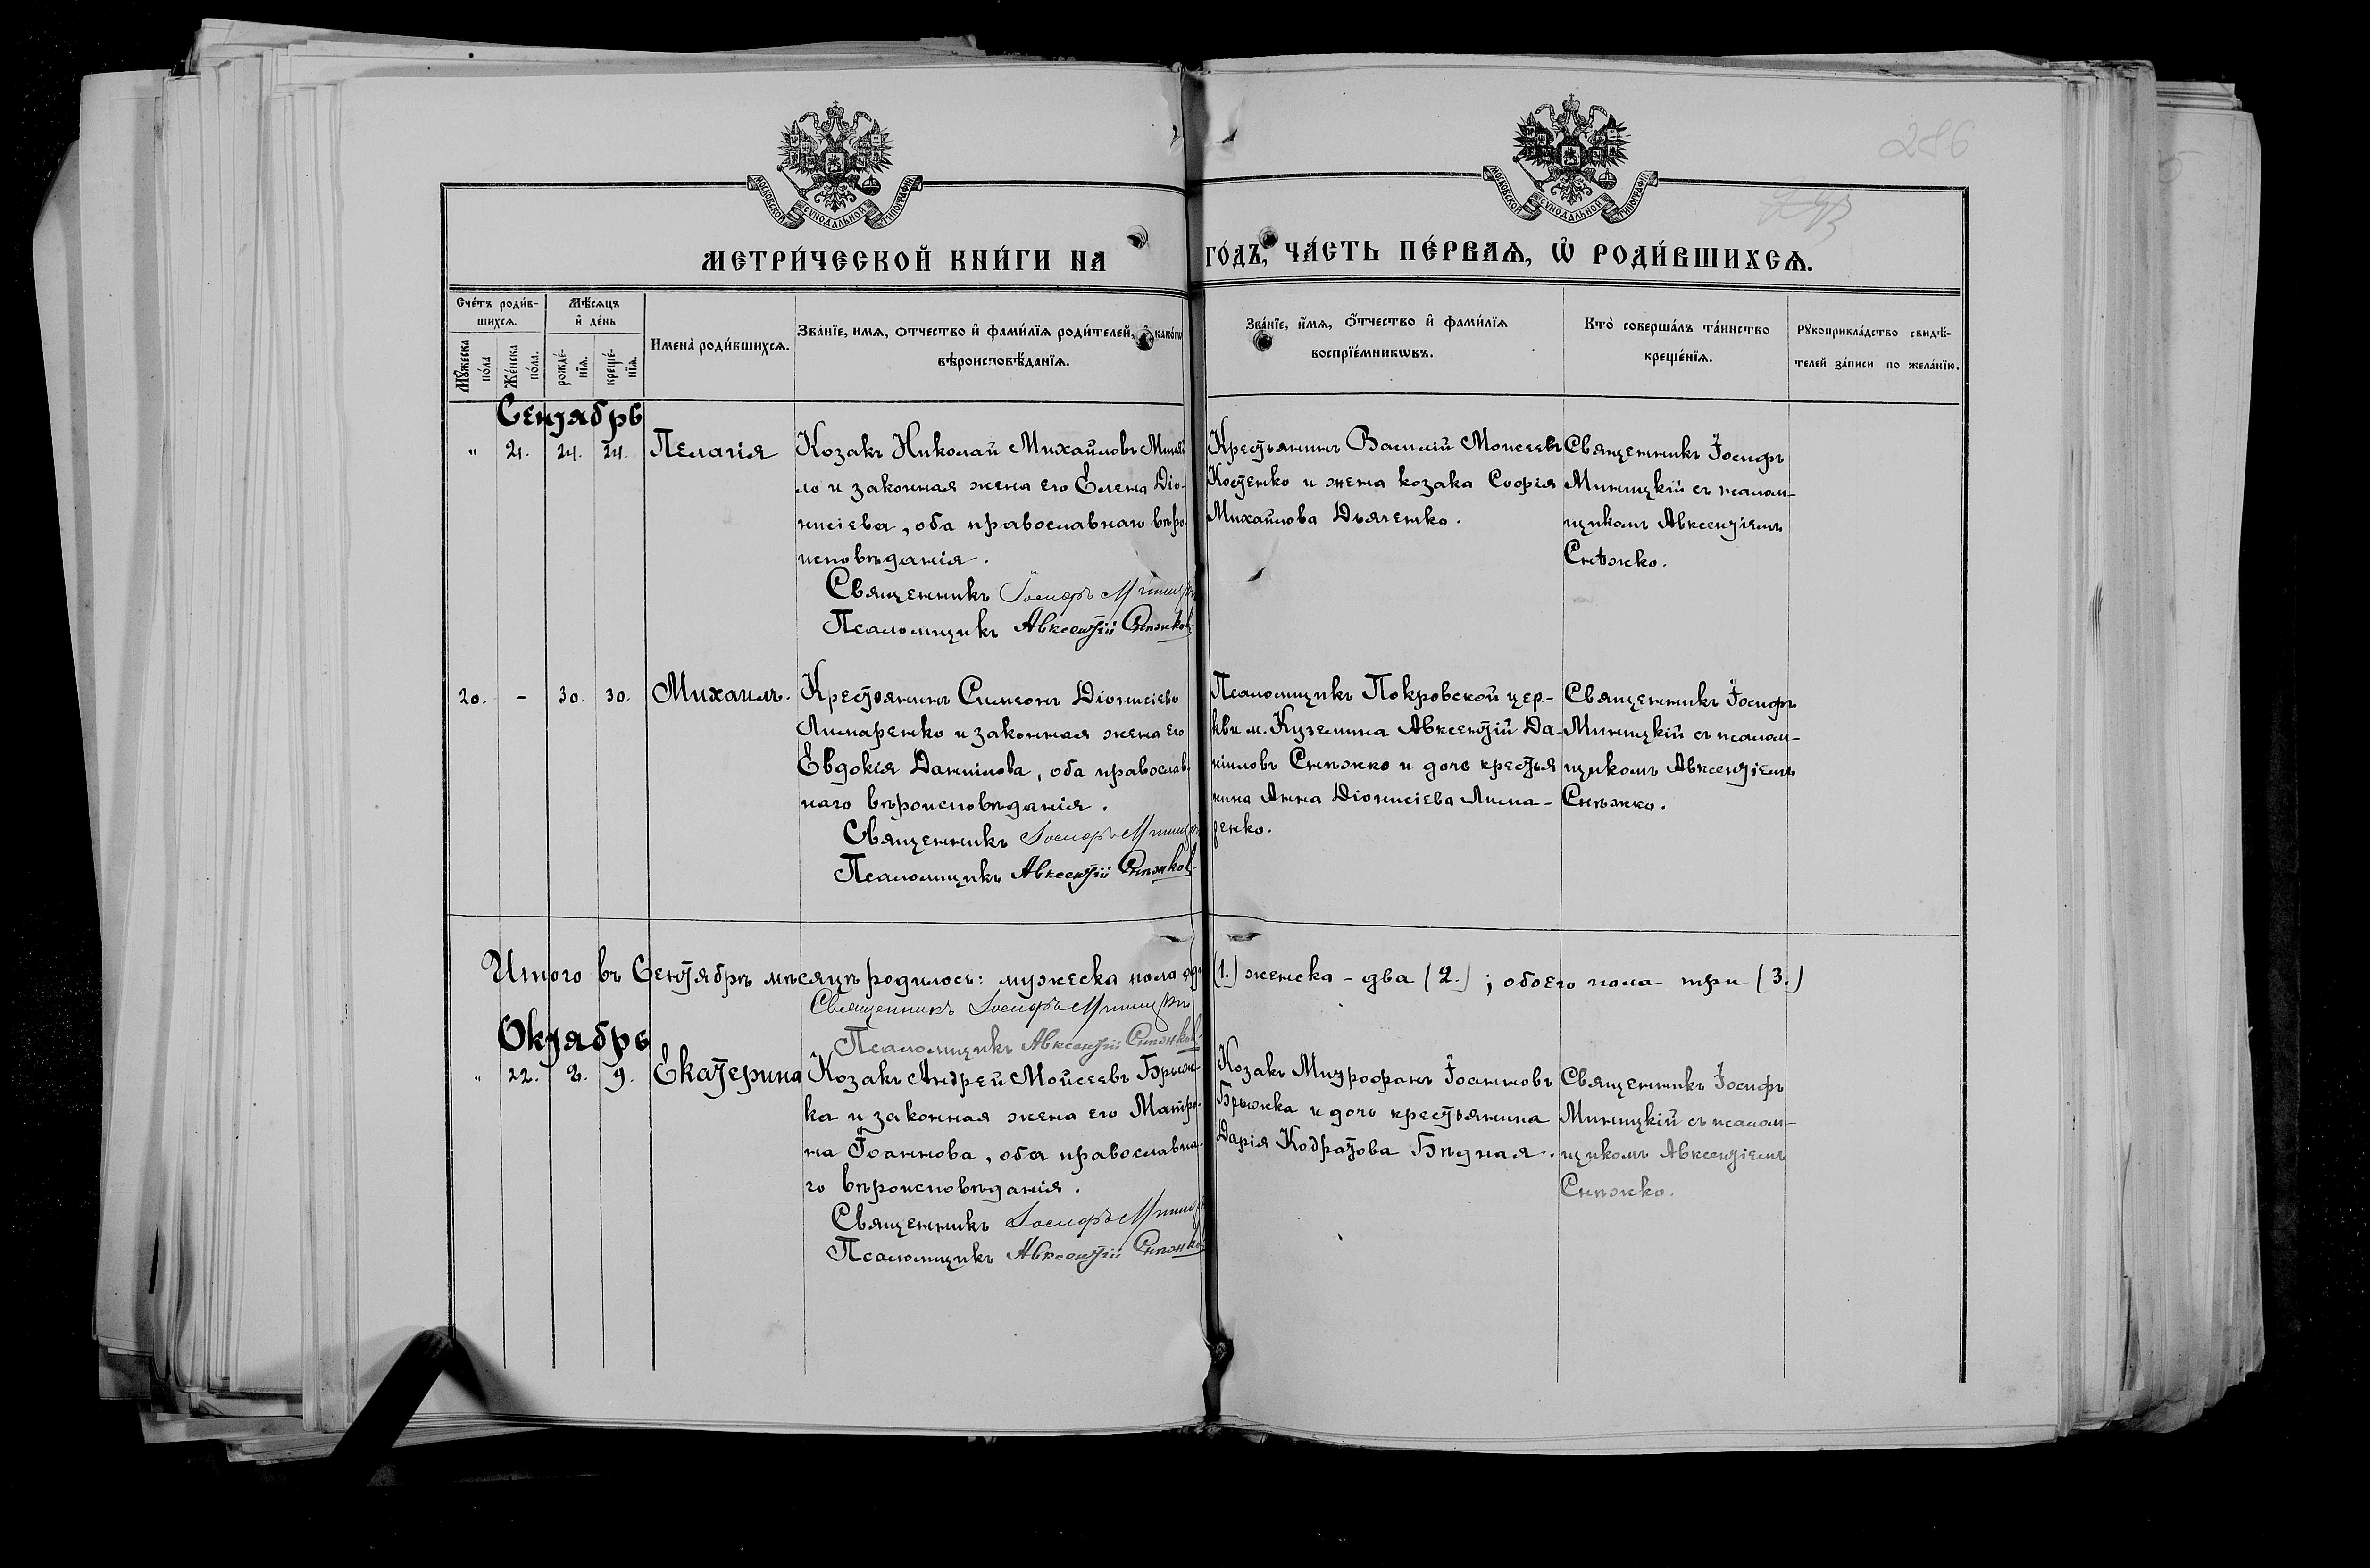 286
МОСКОВСКОЙ СѴНОДАЛЬНОЙ ТИПОГРАФІИ
МОСКОВСКОЙ СѴНОДАЛЬНОЙ ТИПОГРАФІИ
МЕТРИ́ЧЕСКОЙ КНИ́ГИ НА ГО́ДЪ, ЧА́СТЬ ПЕ́РВАѦ, Ѡ РОДИ́ВШИХСѦ.
Сче́тъ роди́в-
шихсѧ.
Мꙋжеска
по́ла
Же́нска
по́ла.
Мѣ́сѧцъ
и҆ де́нь
рожде́-
нїѧ.
креще́-
нїѧ.
Имена̀ роди́вшихсѧ.
Зва́нїе, имѧ, отчество и҆ фами́лїѧ роди́телей, и҆ како́гѡ
вѣроисповѣ́данїѧ.
Зва́нїе, и҆́мѧ, о҆́тчество и҆ фами́лїѧ
воспрїе́мникѡвъ.
Кто̀ соверша́лъ та́инство
креще́нїѧ.
Рꙋкоприкла́дство свидѣ́-
телей за́писи по жела́нїю.
Сентябрь
" 21. 24. 24. Пелагія
Козакъ Николай Михайловъ
ло и законная жена его Елена Діо-
нисіева, оба православнаго вѣро-
исповѣданія.
Священникъ Іосифъ
Псаломщикъ Авксентій Снѣжко
Крестьянинъ Василій Моисеевъ
Костенко и жена козака Софія
Михайлова Дьяченко.
Священникъ Іосифъ
Миницкій съ псалом-
щикомъ Авксентіемъ
Снѣжко.
20. - 30. 30. Михаилъ.
Крестьянинъ Симеонъ Діонисіевъ
Лимаренко и законная жена его
Евдокія Даниілова, оба православ-
наго вѣроисповѣданія.
Священникъ Іосифъ
Псаломщикъ Авксентій Снѣжко
Псаломщикъ Покровской цер-
кви м. Куземина Авксентій Да-
ніиловъ Снѣжко и дочь крестья
нина Анна Діонисіева Лима-
ренко.
Священникъ Іосифъ
Миницкій съ псалом-
щикомъ Авксентіемъ
Снѣжко.
Итого въ Сентябрѣ мѣсяцѣ родилось: мужеска пола (1.) женска - два (2.); обоего пола три (3.)
Священникъ Іосифъ
Псаломщикъ Авксентій Снѣжко
Октябрь
" 22. 2. 9. Екатерина
Козакъ Андрей Мойсеевъ Брыж-
ка и законная жена его Матро-
на Іоаннова, оба православна-
го вѣроисповѣданія.
Священникъ Іосифъ
Псаломщикъ Авксентій Снѣжко
Козакъ Митрофанъ Іоанновъ
Брыжка и дочь крестьянина
Дарія Кодратова Бѣдная.
Священникъ Іосифъ
Миницкій съ псалом-
щикомъ Авксентіемъ
Снѣжко.